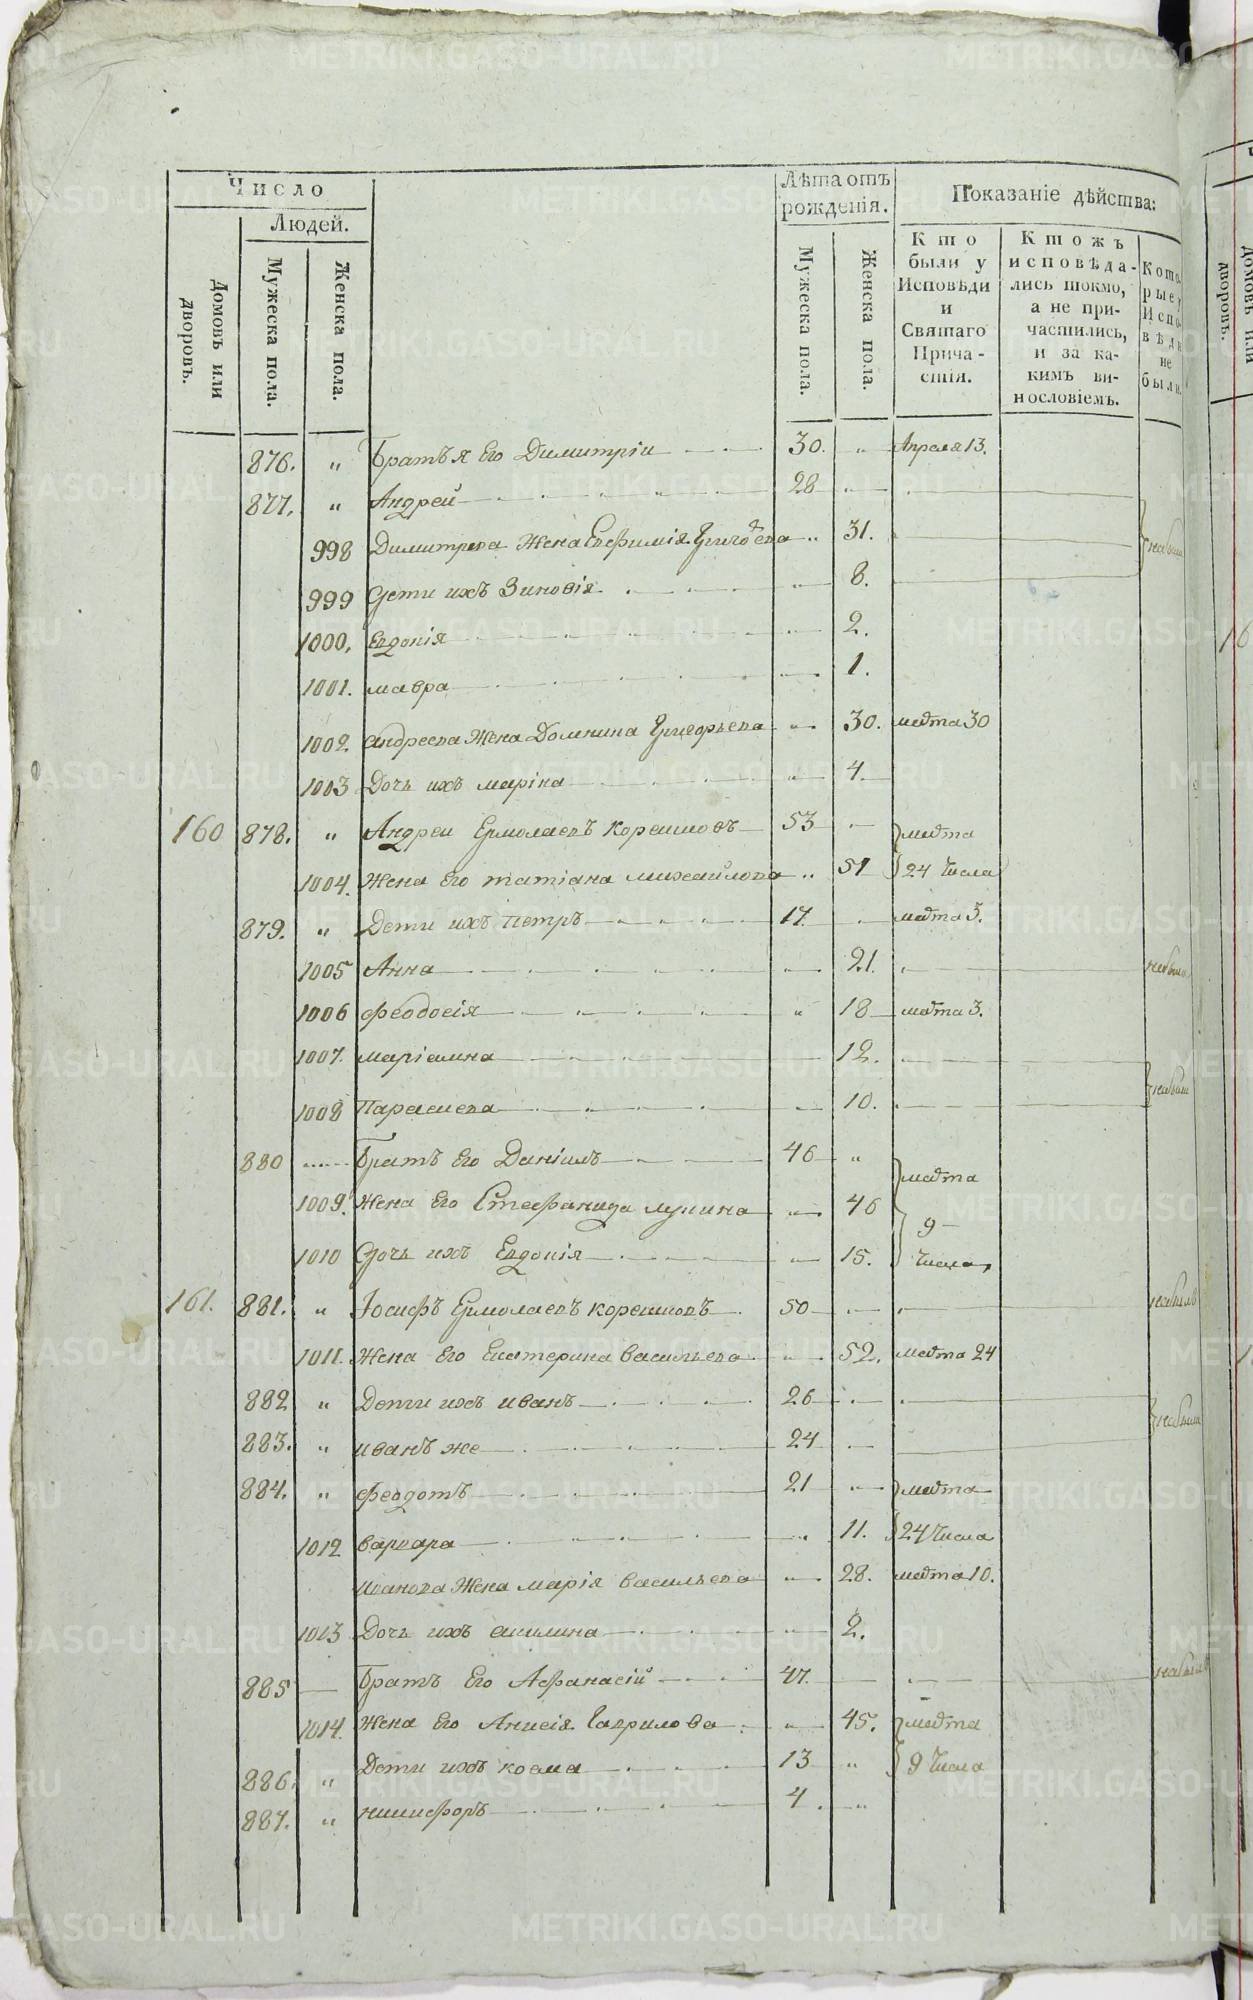 Число
Людей.
Домовъ или дворовъ.
Мужеска пола.
Женска пола.
Лѣта отъ рожденія.
Мужеска пола.
Женска пола.
Показаніе дѣйства:
Кто были у Исповѣди и Святаго Причастія.
Ктожъ исповѣдались токмо, а не причастились, и за какимъ винословіемъ.
Которые у Исповѣди не были.
876. „ Братья Его Димитріи 30. „ Апреля 13.
877. „ Андрей 28
998 Димитрева Жена Евфимія Григорева „ 31. небыли
999 Дети ихъ Зиновія „ 8.
1000. Евдокія 2.
1001. мавра 1.
1002. андреева Жена Домнина Григорьева 30. марта 30
1003 Дочь ихъ маріна „ 4.
160 878. „ Андреи Ермолаевъ корешковъ 53 марта
1004. Жена Его татіана михайлова „ 51 24 Числа
879. „ Дети ихъ петръ 17. марта 3.
1005 Анна 21. небыла
1006 феодосія „ 18 марта 3.
1007. маріамна 12.
1008 Параскева 10. небыли
880 Братъ Его Даніилъ 46 „ марта
1009. Жена Его Стефанида лукина 46 9
1010 Дочь ихъ Евдокія 15. Числа
161. 881. „ Іосифъ Ермолаевъ корешковъ 50 небылъ
1011. Жена Его Екатерина васильева 52. марта 24
882 „ Дети ихъ иванъ 26
883. „ иванъ же 24 небыли
884. „ феодотъ 21 марта
1012 варвара 11. 24 Числа
иванова Жена марія васильева 28. марта 10.
1013 Дочь ихъ акилина 2.
885 Братъ Его Афанасій 47. небылъ
1014. Жена Его Анисія Гаврилова „ 45. марта
886. „ Дети ихъ козма 13 „ 9 Числа
887. „ никифоръ 4. „
Домовъ или дворовъ.
METRIKI.GASO-URAL.RU